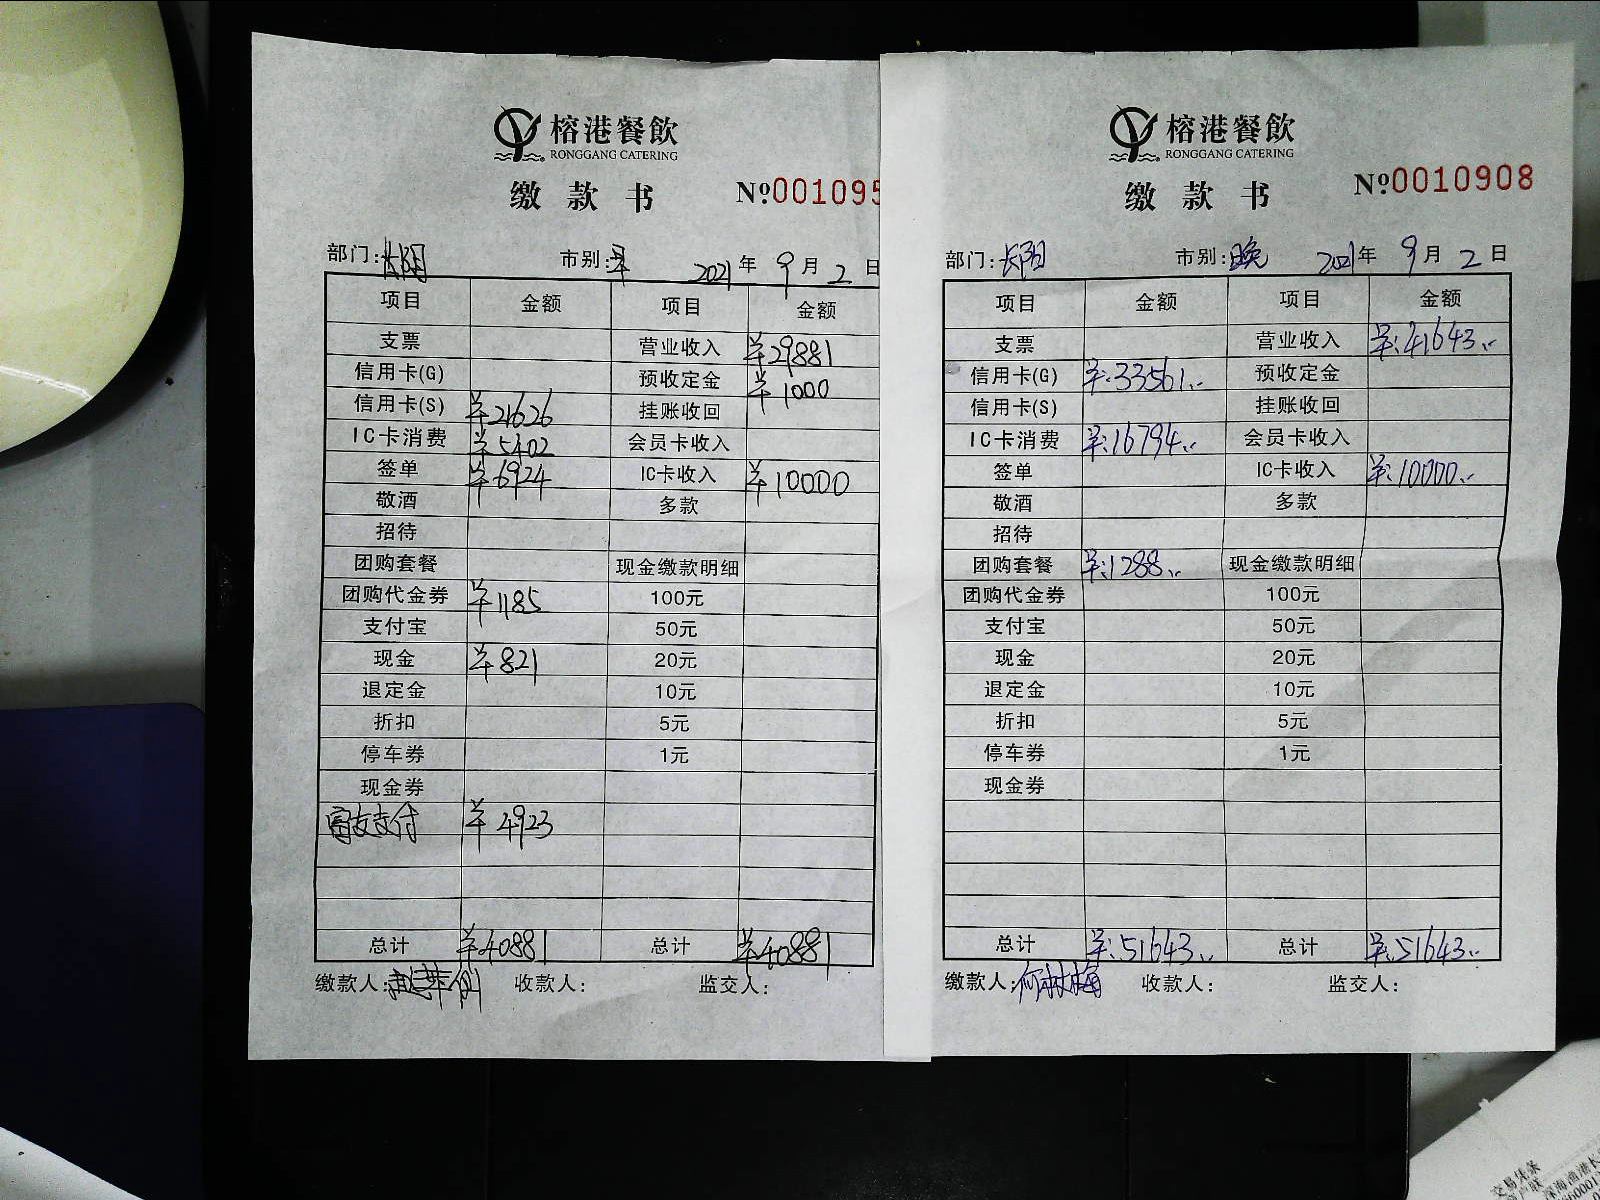 榕港餐飲
RONGGANG CATERING
缴款书
№001095
部门:长阳 市别:早 2021年9月2日
项目 金额 项目 金额
支票 营业收入 ¥29881
信用卡(G) 预收定金 ¥1000
信用卡(S) ¥21626 挂账收回
IC卡消费 ¥5402 会员卡收入
签单 ¥6924 IC卡收入 ¥10000
敬酒 多款
招待
团购套餐 现金缴款明细
团购代金券 ¥1185 100元
支付宝 50元
现金 ¥821 20元
退定金 10元
折扣 5元
停车券 1元
现金券
富友支付 ¥4923
总计 ¥40881 总计 ¥40881
缴款人: 收款人: 监交人:
榕港餐飲
RONGGANG CATERING
缴款书
№0010908
部门:长阳 市别:晚 2021年9月2日
项目 金额 项目 金额
支票 营业收入 ¥:41643..
信用卡(G) ¥:33561.. 预收定金
信用卡(S) 挂账收回
IC卡消费 ¥:16794.. 会员卡收入
签单 IC卡收入 ¥:10000..
敬酒 多款
招待
团购套餐 ¥:1288.. 现金缴款明细
团购代金券 100元
支付宝 50元
现金 20元
退定金 10元
折扣 5元
停车券 1元
现金券
总计 ¥:51643.. 总计 ¥:51643..
缴款人:何林梅 收款人: 监交人: